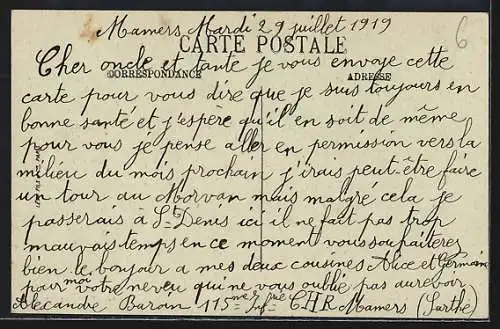 Mamers Mardi 29 juillet 1919
CARTE POSTALE
Cher oncle et tante je vous envoye cette
CORRESPONDANCE
ADRESSE
carte pour vous dire que je suis toujours en
bonne santé et j'espère qu'il en soit de même
pour vous je pense aller en permission vers la
milieu du mois prochain j'irais peut-être faire
un tour au Morvan mais malgré cela je
passerais à St Denis ici il ne fait pas trop
mauvais temps en ce moment vous souhaiterez
bien le bonjour a mes deux cousines Alice et Germaine
pour moi votre neveu qui ne vous oublie pas au revoir
Alexandre Baroin 115me Infrie CHR Mamers (Sarthe)
6